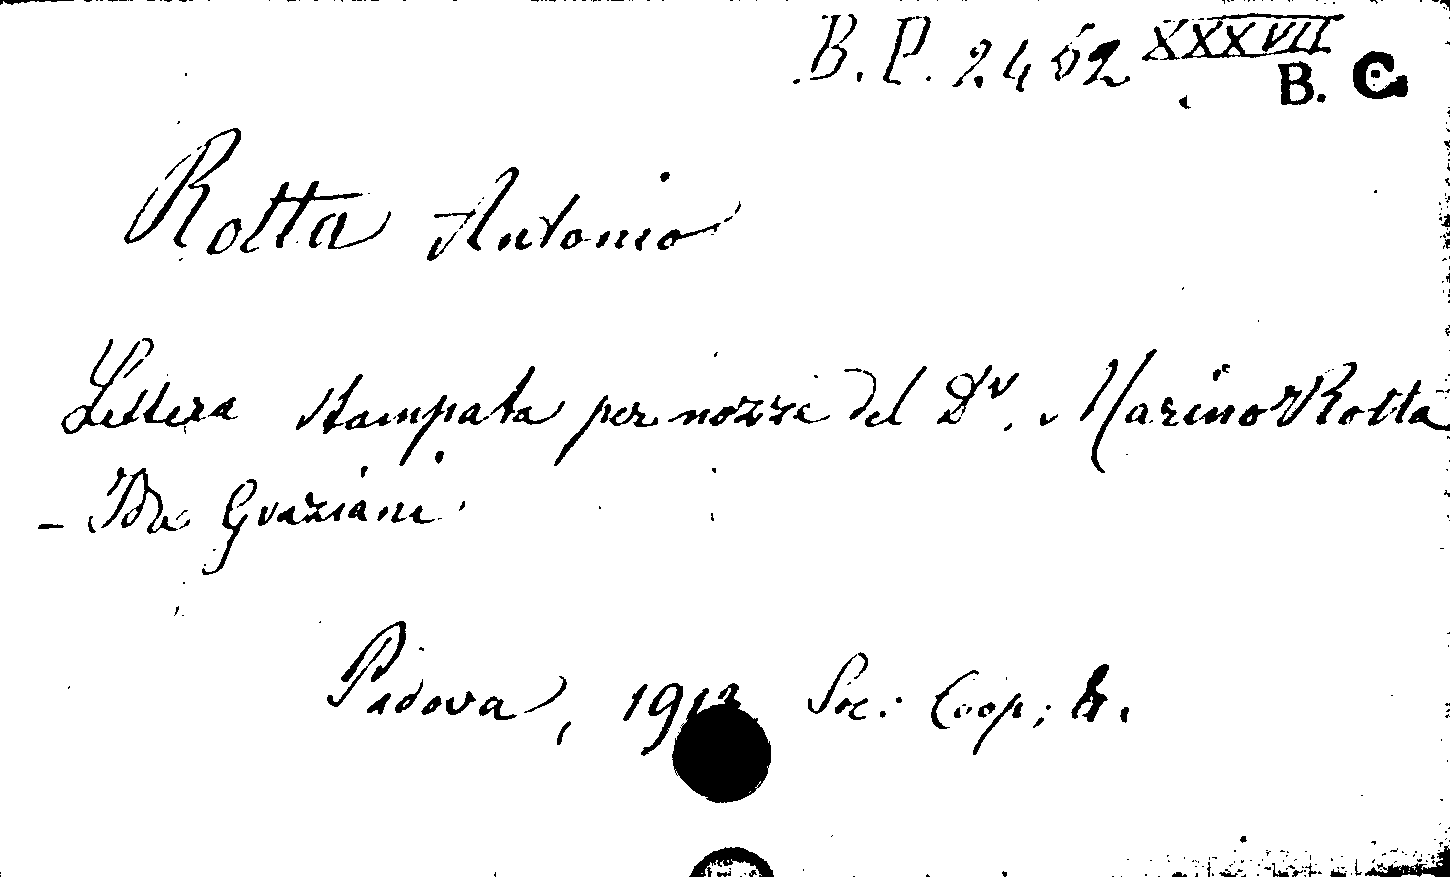 B. P. 2462 XXXVII
B. C.
Rotta Antonio
Lettera stampata per nozze del Dr. Marino Rotta
- Ida Graziani
Padova, 1913 Soc. Coop.